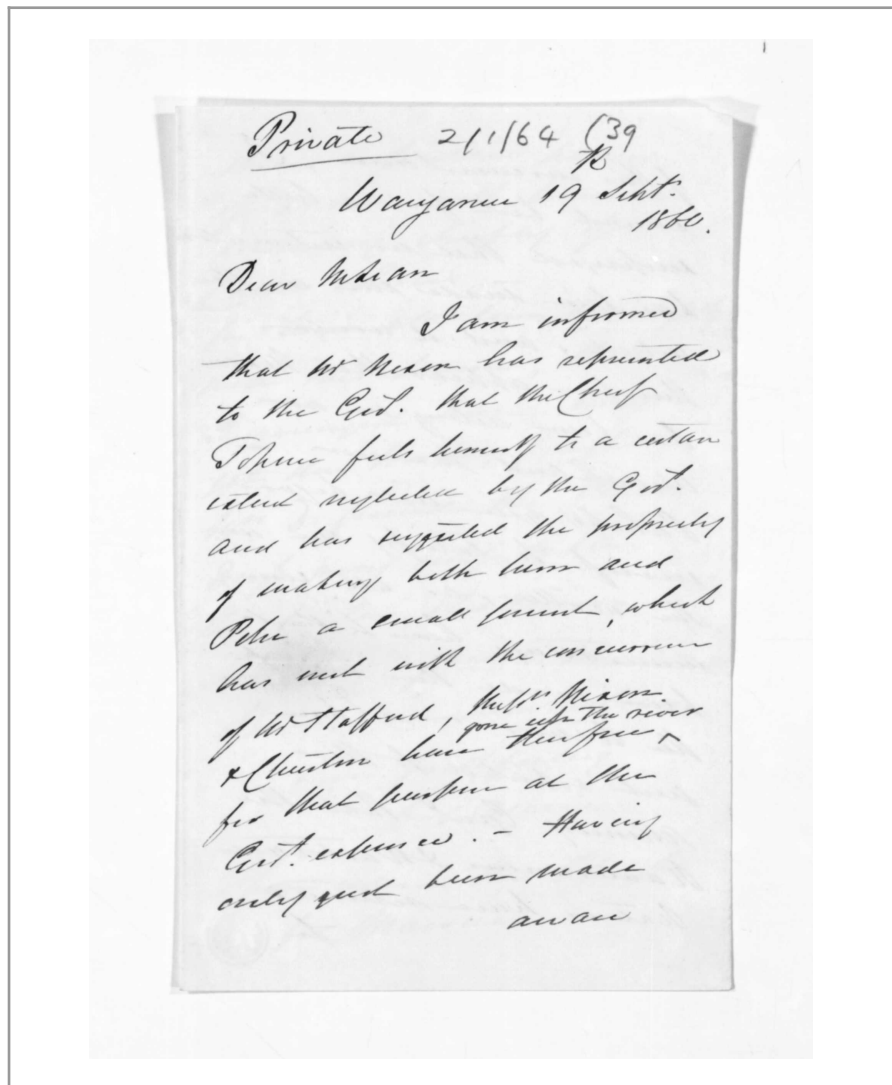 Private 2/1/64 (39
R
Wanganui 19 Sept.
1860.
Dear McLean
I am informed
that Mr Nixon has represented
to the Govt. that the Chief
Topine feels himself to a certain
extent neglected by the Govt.
and has suggested the propriety
of making both him and
Pehi a small present, which
has met with the concurrence
of Mr Stafford, Messrs Nixon
gone up the river
& Churton have therefore ^
for that purpose at the
Govt. expense. - Having
only just been made
aware